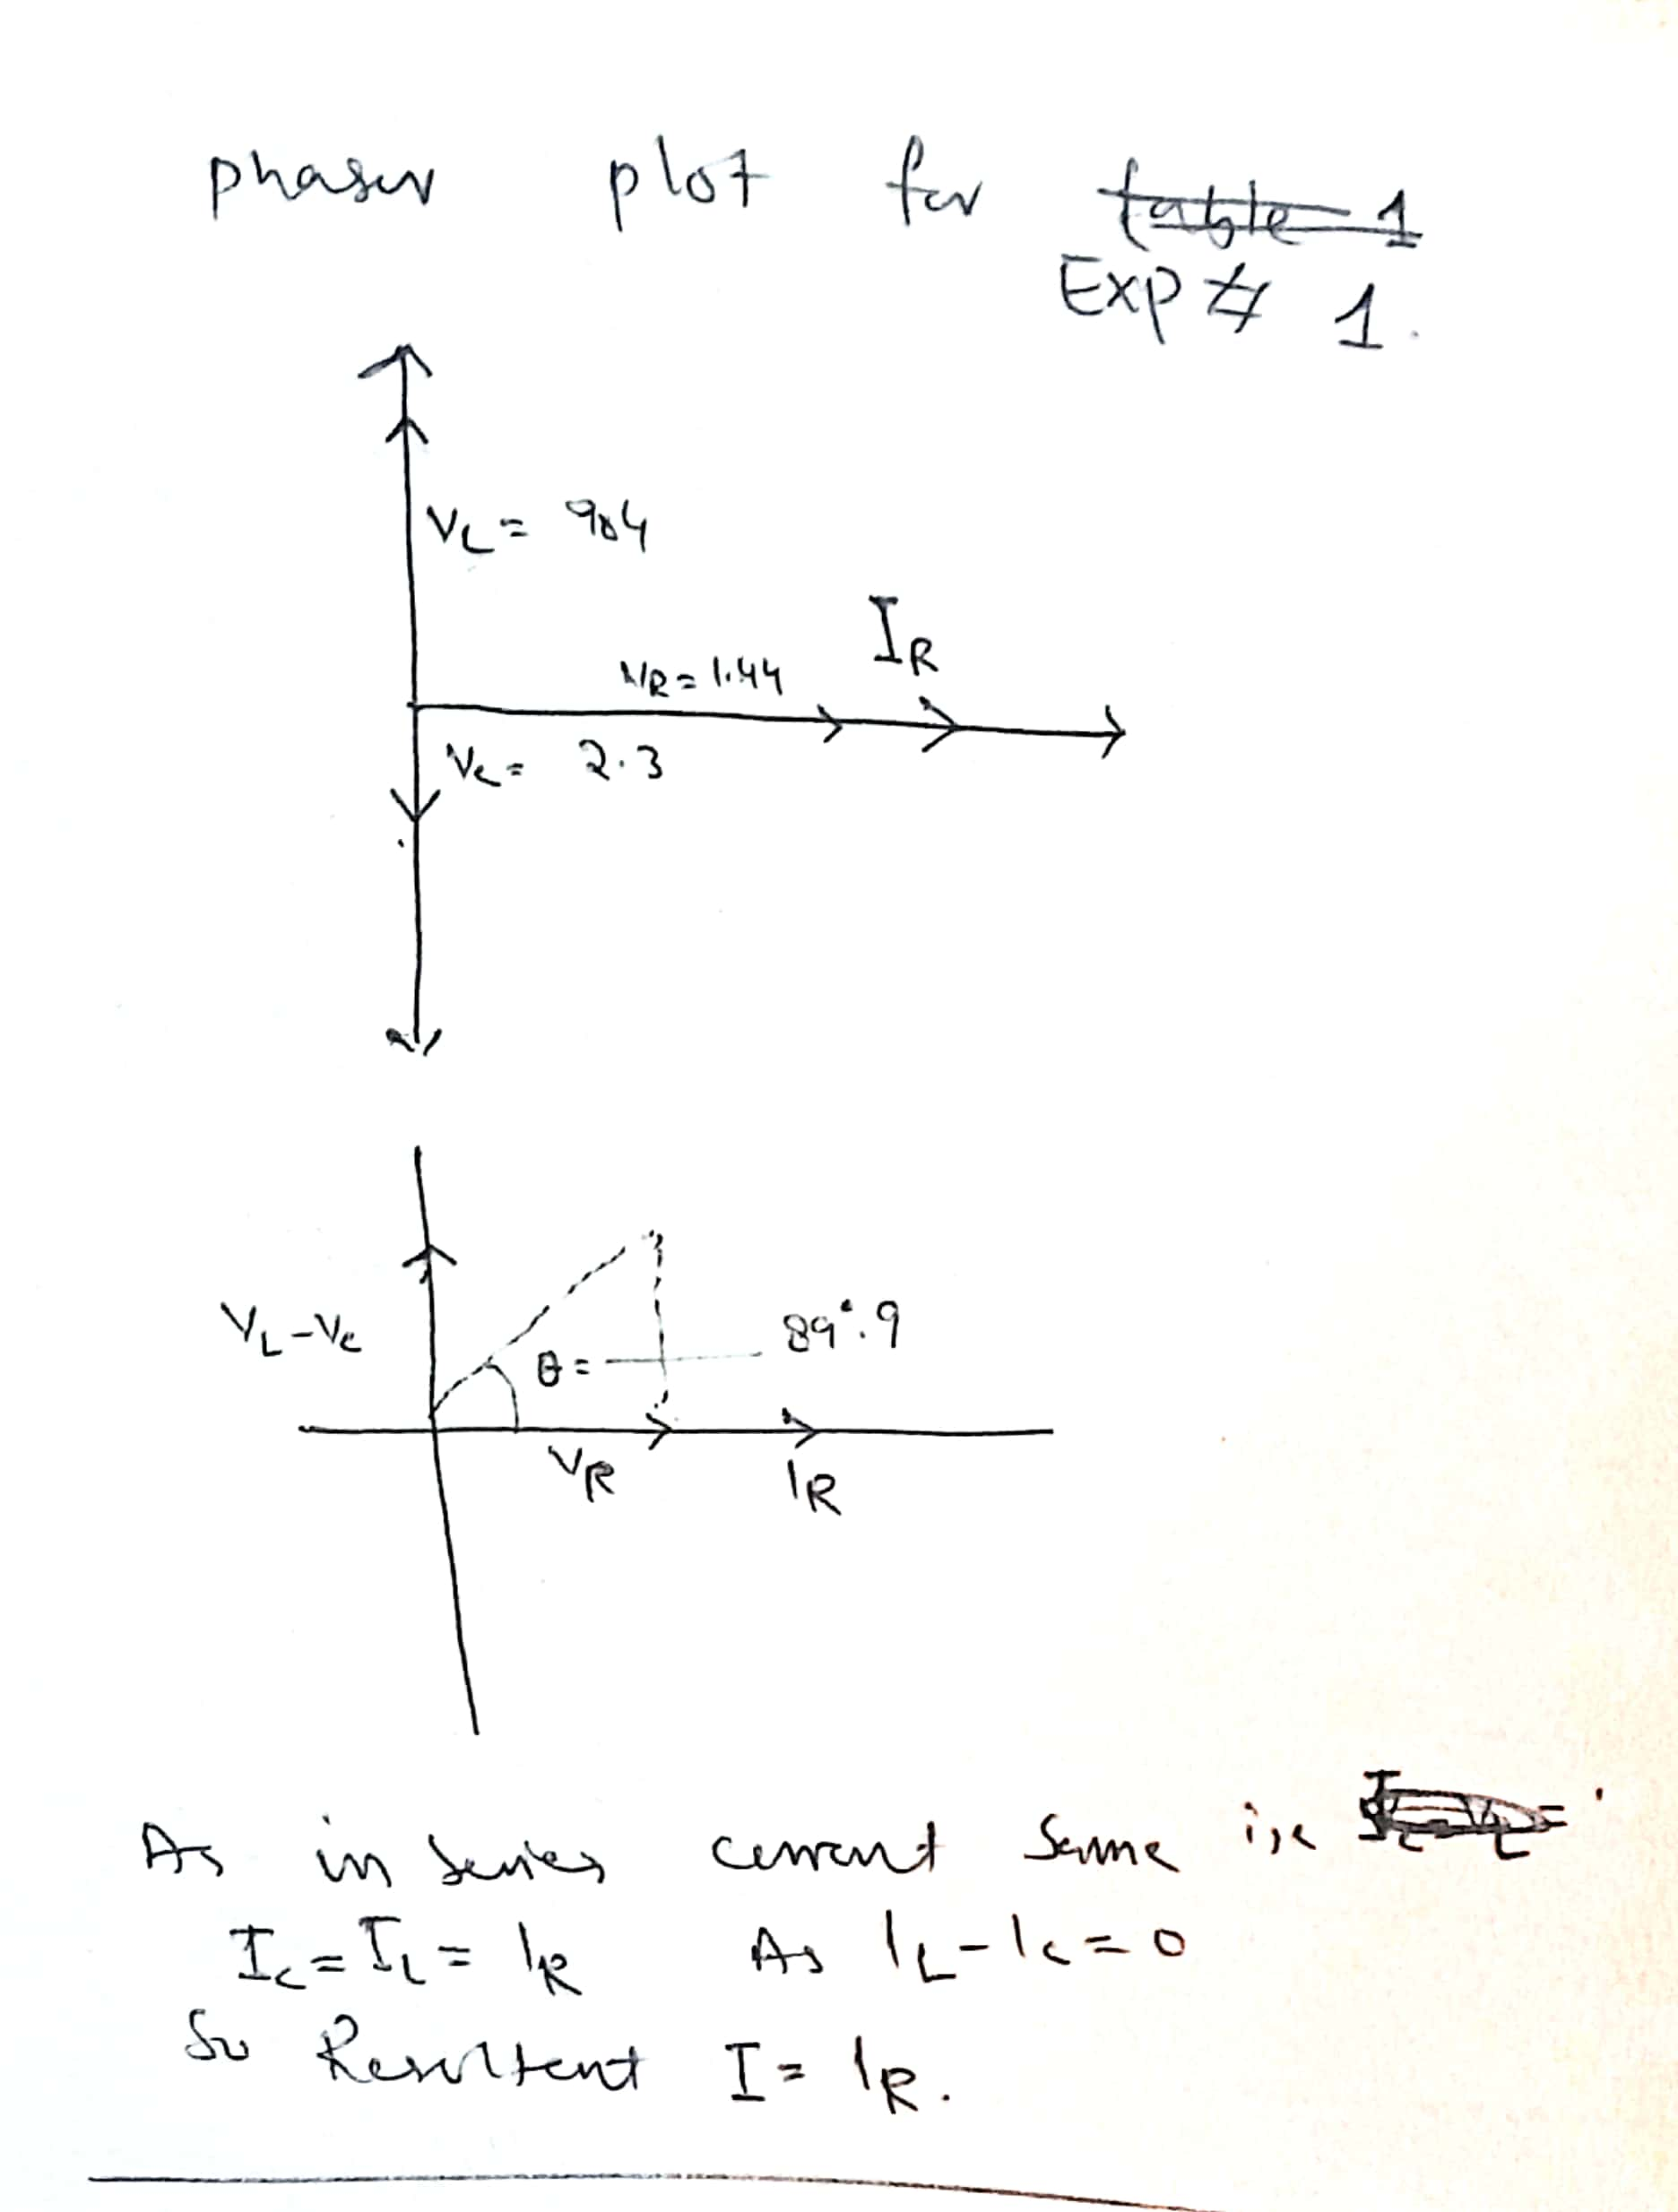 phasor plot for table 1
Exp # 1.
VL = 904
IR
VR = 1.44
Vc = 2.3
VL - Vc
θ = 89°.9
VR
IR
As in series current same i.e
Ic = IL = IR As IL - Ic = 0
So Resultent I = IR.